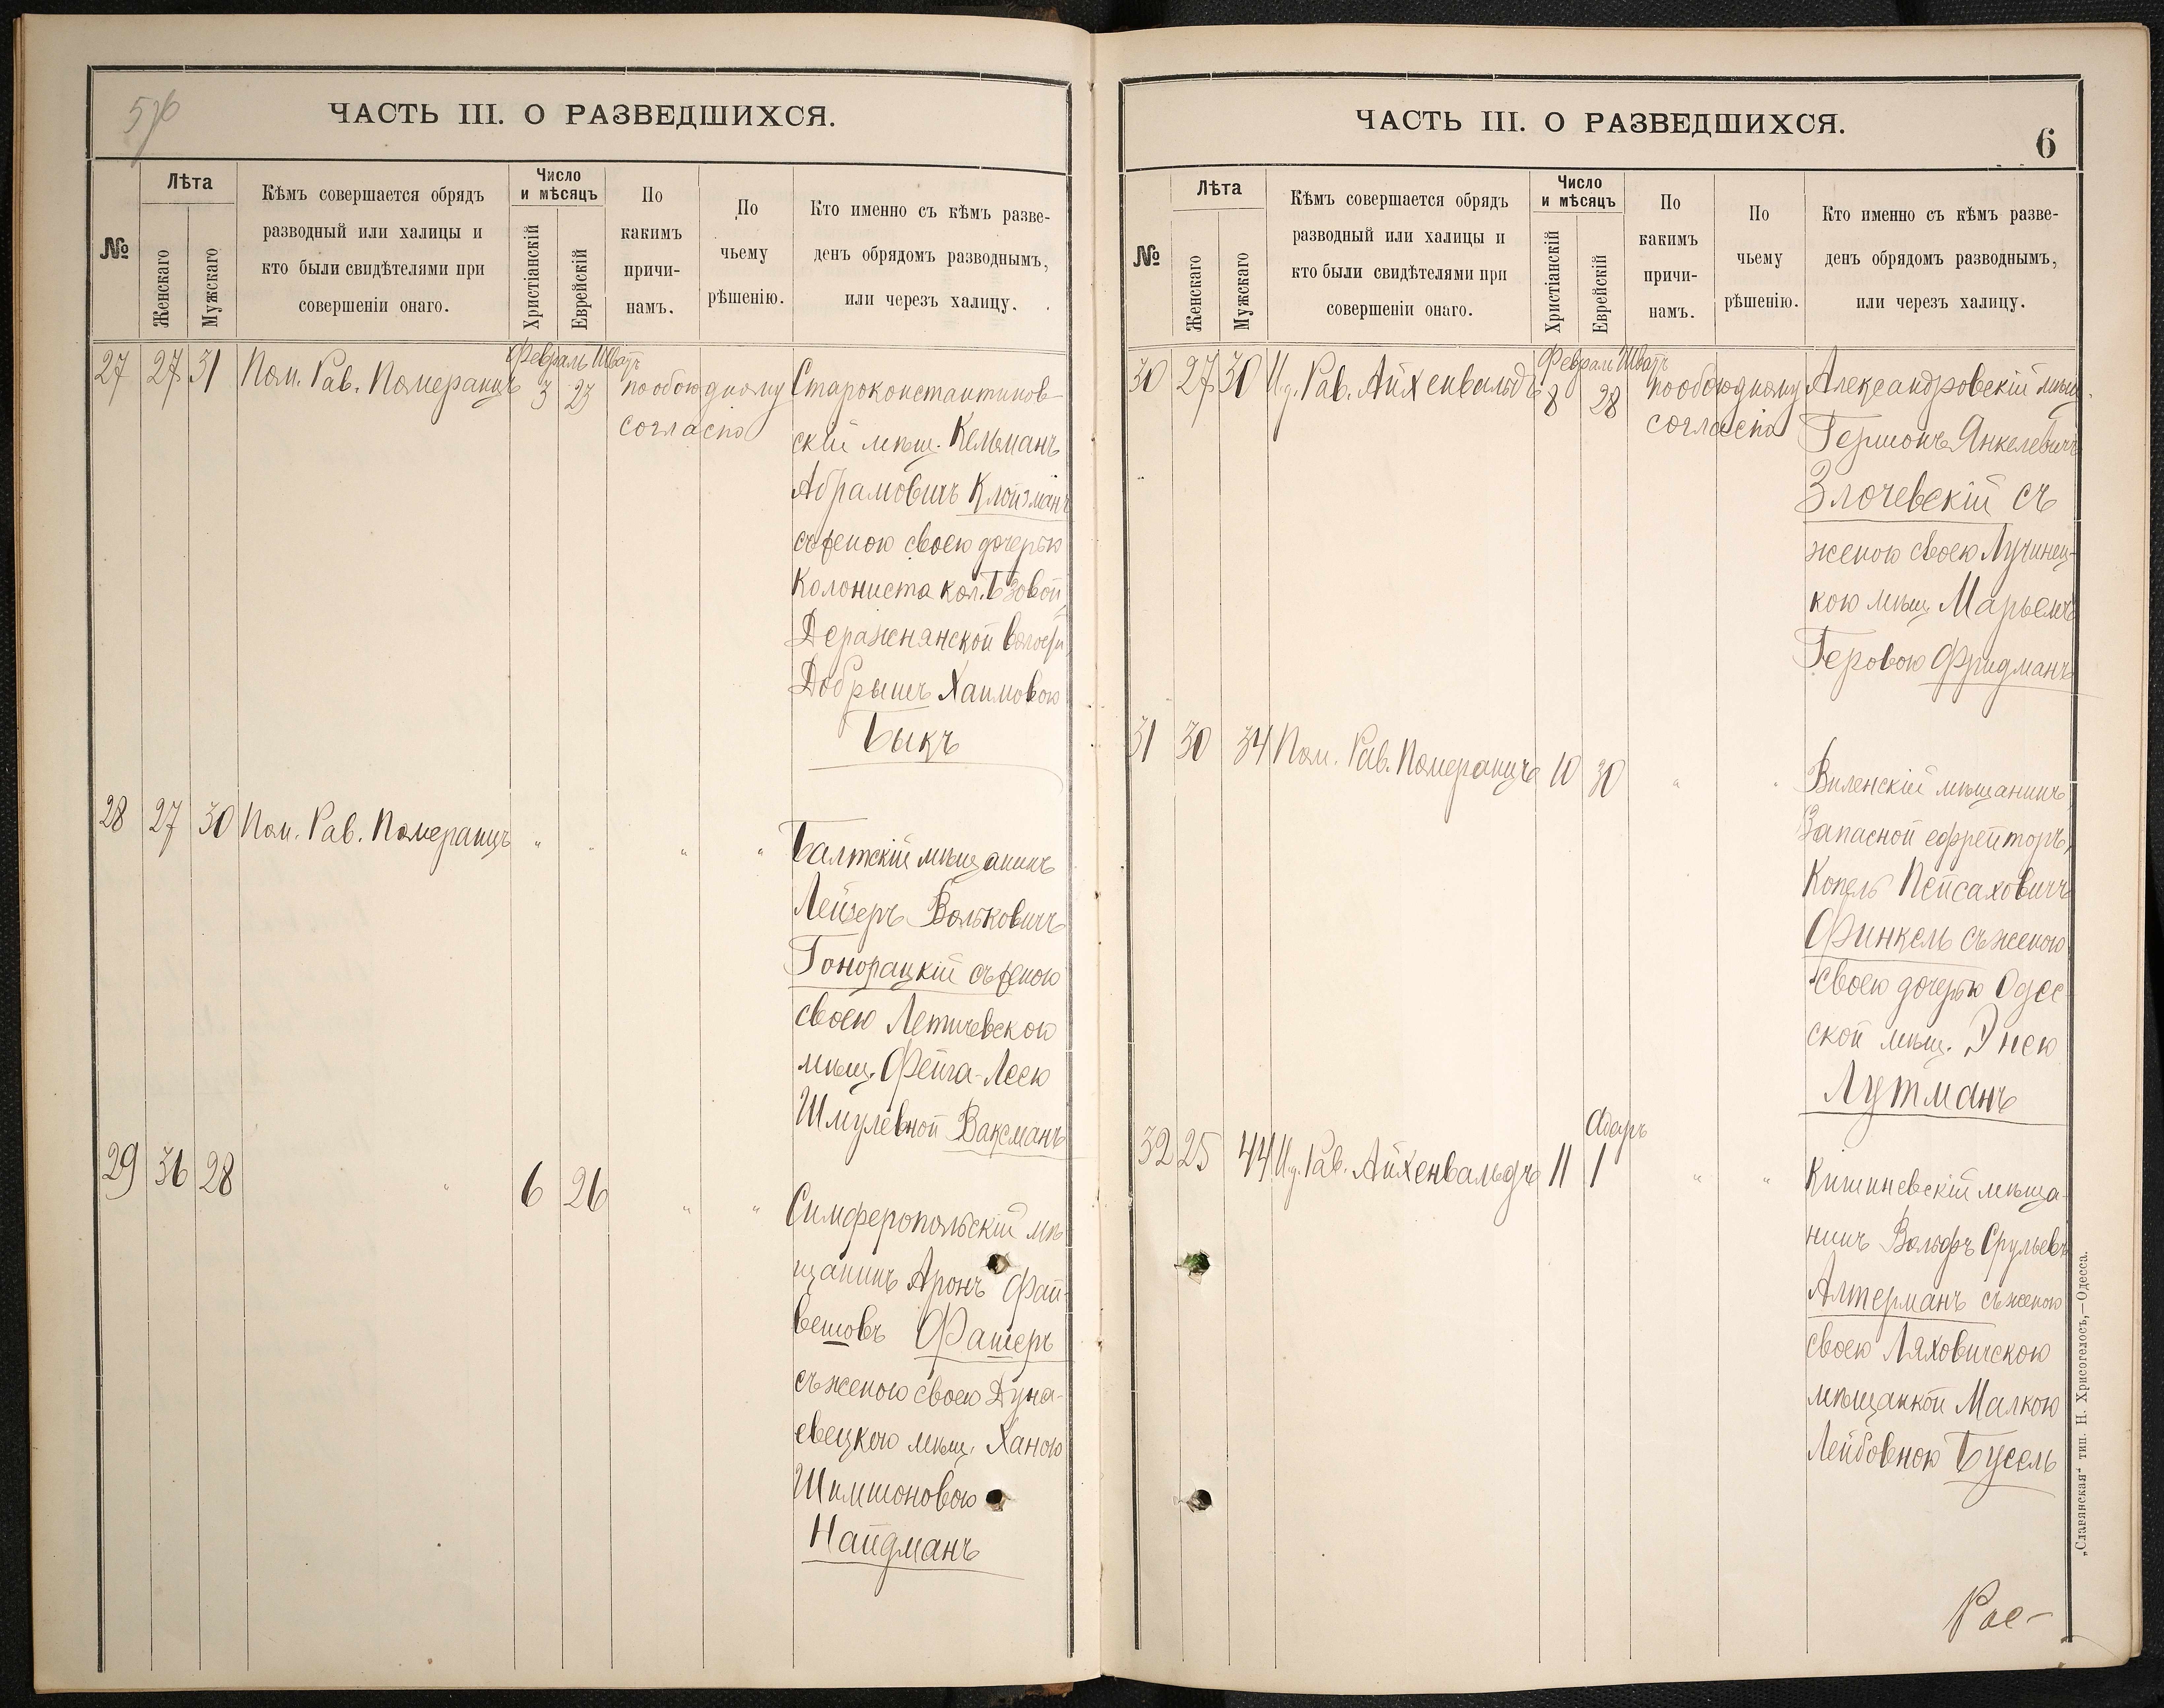 576
ЧАСТЬ III. О РАЗВЕДШИХСЯ.
№
Лѣта
Женскаго
Мужскаго
Кѣмъ совершается обрядъ
разводный или халицы и
кто были свидѣтелями при
совершеніи онаго.
Число
и мѣсяцъ
Христіанскій
Еврейскій
По
какимъ
причи-
намъ.
По
чьему
рѣшенію.
Кто именно съ кѣмъ разве-
денъ обрядомъ разводнымъ,
или черезъ халицу.
Февраль Шватъ
27 27 31 Пом. Рав. Померанцъ 3 23 по обоюдному
согласію
Староконстантинов-
скій мѣщ. Кельманъ
Абрамовичъ Клойзманъ
съ женою своею дочерью
Колониста кол.
Деражнянской волости
Добрышъ Хаимовою
Быкъ
28 27 30 Пом. Рав. Померанцъ " " " "
Балтскій мѣщанинъ
Лейзеръ Вольковичъ
Гонорацкій съ женою
своею Летичевскою
мѣщ. Фейга-Леею
Шмулевной Ваксманъ
29 36 28 " 6 26 " "
Симферопольскій мѣ-
щанинъ Аронъ Фай-
вешовъ Фатеръ
съ женою своею Дуна-
евецкою мѣщ. Ханою
Шимшоновою
Найдманъ
ЧАСТЬ III. О РАЗВЕДШИХСЯ.
6
№
Лѣта
Женскаго
Мужскаго
Кѣмъ совершается обрядъ
разводный или халицы и
кто были свидѣтелями при
совершеніи онаго.
Число
и мѣсяцъ
Христіанскій
Еврейскій
По
какимъ
причи-
намъ.
По
чьему
рѣшенію.
Кто именно съ кѣмъ разве-
денъ обрядомъ разводнымъ,
или черезъ халицу.
Феврал Шватъ
30 27 30 И.д. Рав. Айхенвальдъ 8 28 по обоюдному
согласію
Александровскій мѣщ.
Гершонъ Янкелевичъ
Злочевскій съ
женою своею Лучинец-
кою мѣщ. Марьемъ
Геровою Фридманъ
31 30 34 Пом. Рав. Померанцъ 10 30 " "
Виленскій мѣщанинъ
Запасной ефрейторъ,
Копель Пейсаховичъ
Финкель съ женою
своею дочерью Одес
ской мѣщ. Энею
Лутманъ
Адаръ
32 25 44 И.д. Рав. Айхенвальдъ 11 1 " "
Кишиневскій мѣща-
нинъ Вольфъ Срулевъ
Алтерманъ съ женою
своею Ляховичскою
мѣщанкой Малкою
Лейбовною Бусель
Рас-
„Славянская" тип. Н. Хрисогелосъ,—Одесса.